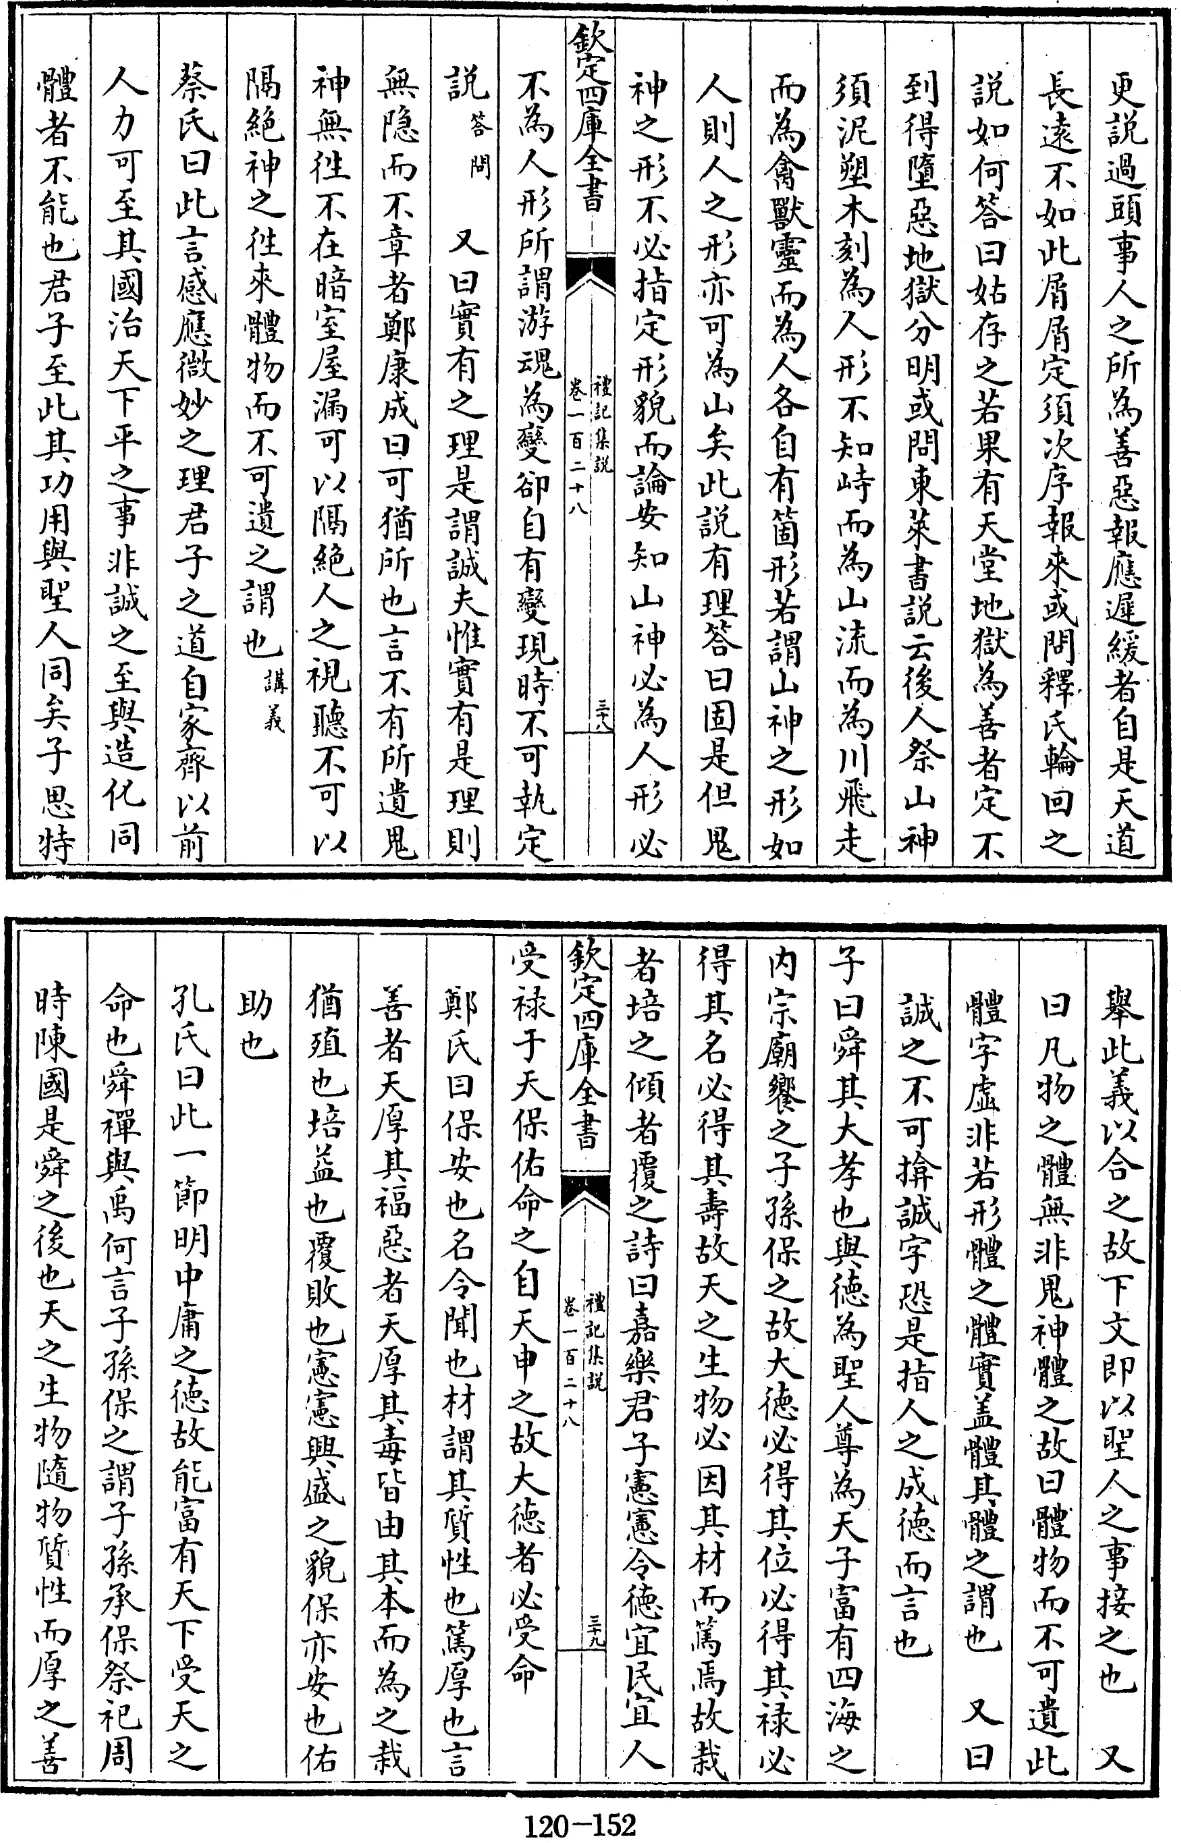 更説過頭事人之所為善惡報應遲緩者自是天道
長逺不如此屑屑定須次序報來或問釋氏輪回之
説如何答曰姑存之若果有天堂地獄為善者定不
到得墮惡地獄分明或問東萊書説云後人祭山神
須泥塑木刻為人形不知峙而為山流而為川飛走
而為禽獸靈而為人各自有箇形若謂山神之形如
人則人之形亦可為山矣此説有理答曰固是但鬼
神之形不必指定形貌而論安知山神必為人形必
欽定四庫全書
禮記集説
卷一百二十八
三十八
不為人形所謂游魂為變卻自有變現時不可執定
説答問　又曰實有之理是謂誠夫惟實有是理則
無隐而不章者鄭康成曰可猶所也言不有所遺鬼
神無徃不在暗室屋漏可以隔絶人之視聽不可以
隔絶神之徃來體物而不可遺之謂也講義
蔡氏曰此言感應微妙之理君子之道自家齊以前
人力可至其國治天下平之事非誠之至與造化同
體者不能也君子至此其功用與聖人同矣子思特
舉此義以合之故下文即以聖人之事接之也　又
曰凡物之體無非鬼神體之故曰體物而不可遺此
體字虛非若形體之體實盖體其體之謂也　又曰
誠之不可揜誠字恐是指人之成徳而言也
子曰舜其大孝也與徳為聖人尊為天子富有四海之
内宗廟饗之子孫保之故大徳必得其位必得其禄必
得其名必得其壽故天之生物必因其材而篤焉故栽
者培之傾者覆之詩曰嘉樂君子憲憲令徳宜民宜人
欽定四庫全書
禮記集説
卷一百二十八
三十九
受禄于天保佑命之自天申之故大徳者必受命
鄭氏曰保安也名令聞也材謂其質性也篤厚也言
善者天厚其福惡者天厚其毒皆由其本而為之栽
猶殖也培益也覆敗也憲憲興盛之貌保亦安也佑
助也
孔氏曰此一節明中庸之徳故能富有天下受天之
命也舜禪與禹何言子孫保之謂子孫承保祭祀周
時陳國是舜之後也天之生物隨物質性而厚之善
120-152